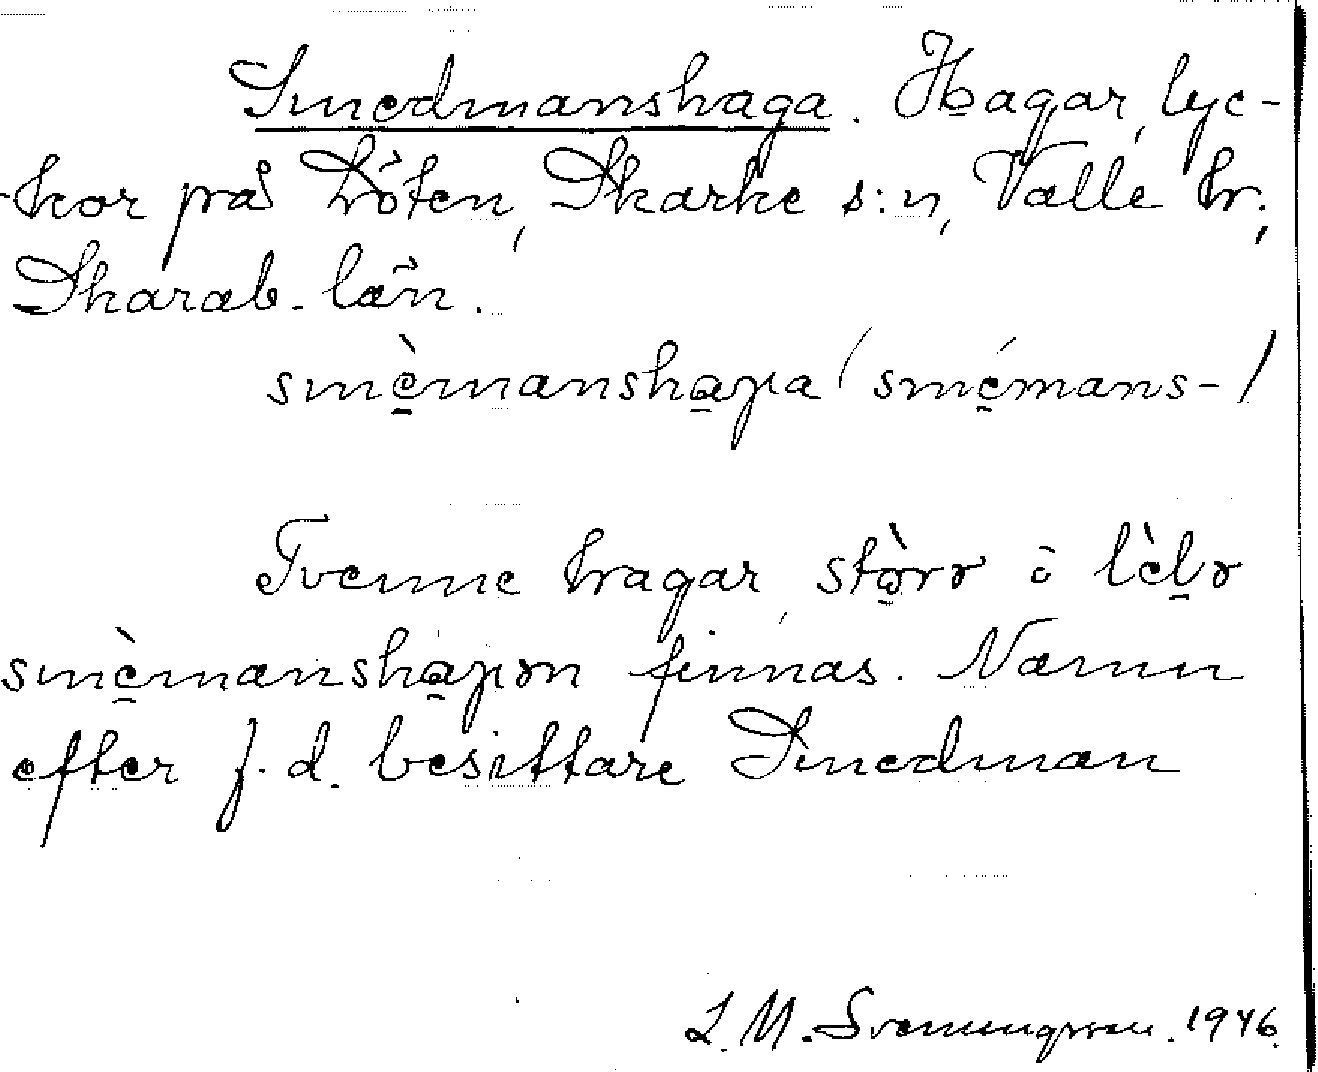 Smedmanshaga. Hagar, lyc-
kor på Löten, Skarke s:n, Valle hr.,
Skarab. län.
smè̠mansha̠ga (smé̠mans-)
Tvenne hagar, stò̠rə å lèl̠ə
smè̠mansha̠gən finnas. Namn
efter f.d. besittare Smedman
L. M. Svenungsson. 1946.